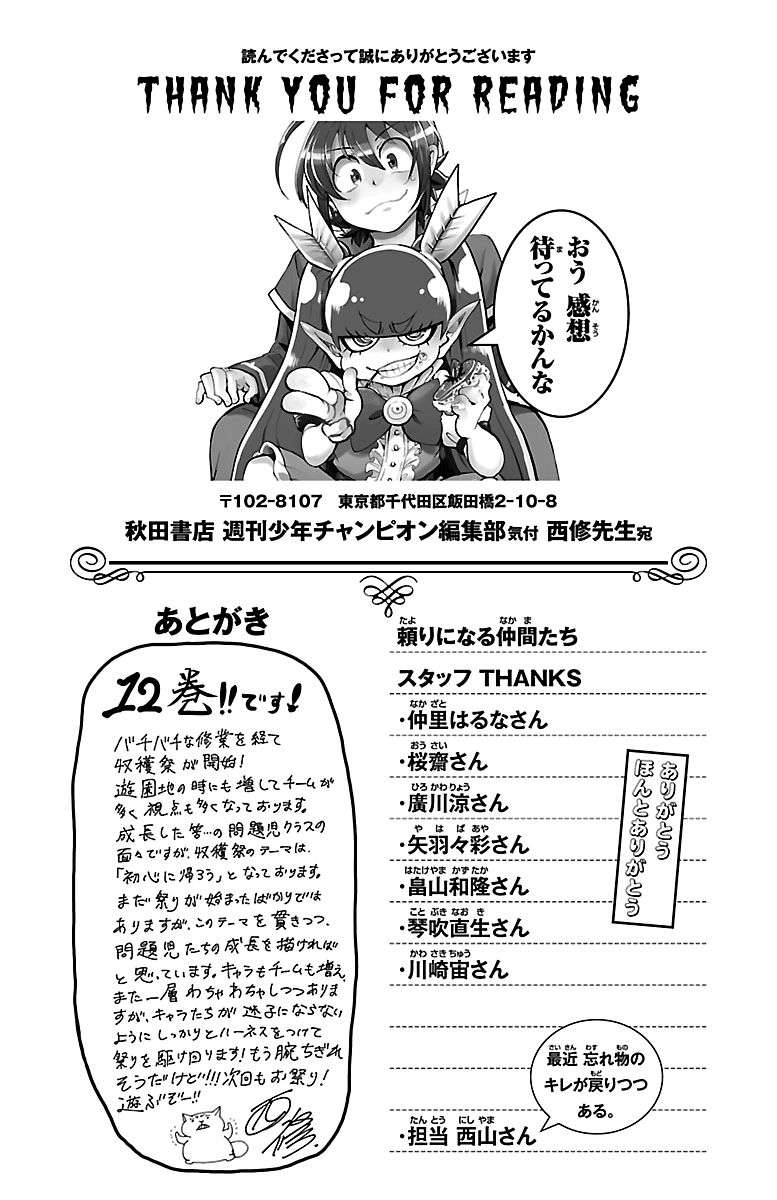 読んでくださって誠にありがとうございます
THANK YOU FOR READING
おう 感想
かんそう
待ってるかんな
ま
〒102-8107 東京都千代田区飯田橋2-10-8
秋田書店 週刊少年チャンピオン編集部気付 西修先生宛
あとがき
12巻!!です!
バチバチな修業を経て
収穫祭が開始!
遊園地の時にも増してチームが
多く視点も多くなっております。
成長した筈…の問題児クラスの
面々ですが、収穫祭のテーマは、
「初心に帰ろう」となっております。
まだ祭りが始まったばかりでは
ありますが、このテーマを貫きつつ、
問題児たちの成長を描ければ
と思っています。キャラもチームも増え、
また一層わちゃわちゃしつつありま
すが、キャラたちが迷子にならない
ようにしっかりとハーネスをつけて
祭りを駆け回ります!もう腕ちぎれ
そうだけど!!!次回もお祭り!
遊ぶぞー!!
西修.
たよ なかま
頼りになる仲間たち
スタッフ THANKS
なかざと
・仲里はるなさん
おうさい
・桜齋さん
ひろかわりょう
・廣川涼さん
やはばあや
・矢羽々彩さん
はたけやま かずたか
・畠山和隆さん
ことぶきなおき
・琴吹直生さん
かわさきちゅう
・川崎宙さん
ありがとう
ほんとありがとう
さいきん わす もの
最近 忘れ物の
もど
キレが戻りつつ
ある。
たんとう にしやま
・担当 西山さん